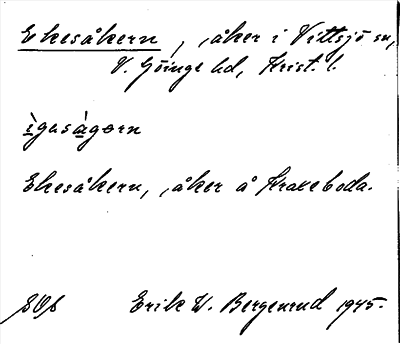 Ekesåkern, åker i Vittsjö sn,
V. Göinge hd, Krist. l.
ìgasågørn
Ekesåkern, åker å Krakeboda.
Erik W. Bergenrud 1945.